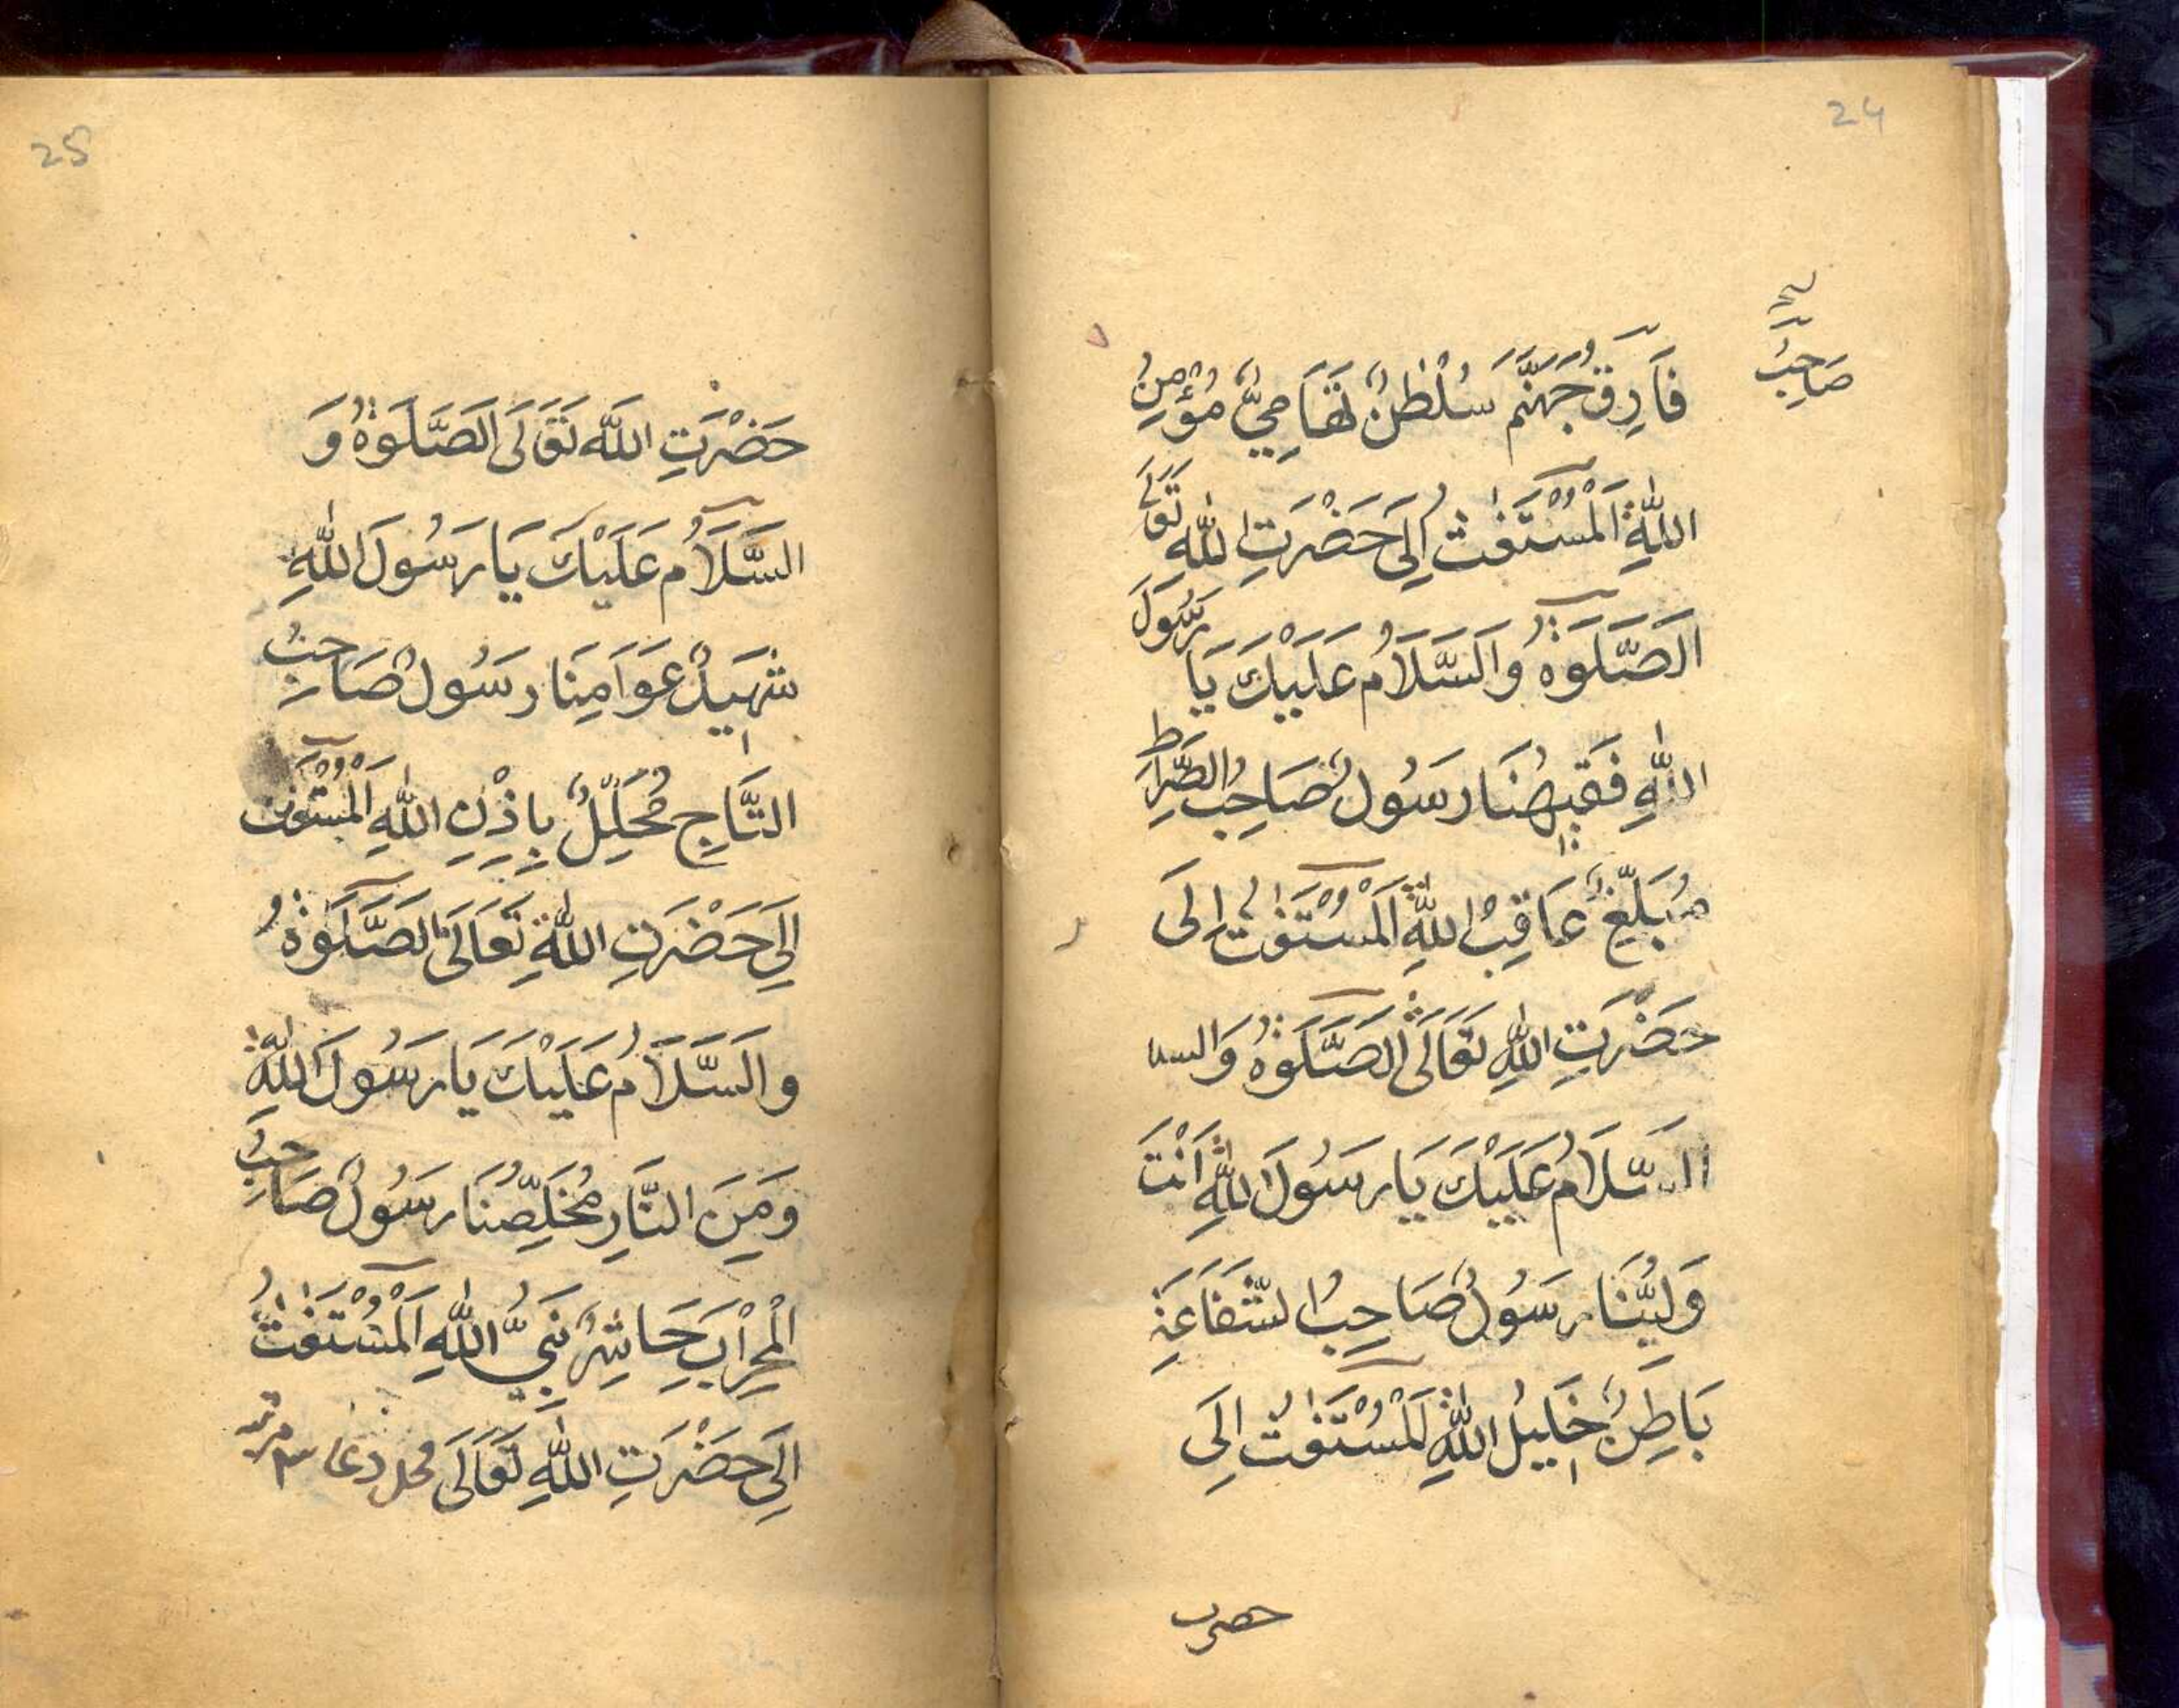 24
صَاحِبُ
فَارِقُ جَهَنَّمَ سُلْطٰنٌ تَهَامِيٌّ مُؤْمِنُ
اللّٰهِ اَلْمُسْتَغٰثُ اِلَى حَضْرَتِ اللّٰهِ تَعَالَى
اَلصَّلَوةُ وَالسَّلَامُ عَلَيْكَ يَا رَسُولَ
اللّٰهِ فَقِيهُنَا رَسُولٌ صَاحِبُ الصِّرَاطِ
مُبَلِّغٌ عَاقِبُ اللّٰهِ اَلْمُسْتَغٰثُ اِلَى
حَضْرَتِ اللّٰهِ تَعَالَى اَلصَّلَوةُ وَالسا
السَّلَامُ عَلَيْكَ يَا رَسُولَ اللّٰهِ اَنْتَ
وَلِيُّنَا رَسُولٌ صَاحِبُ الشَّفَاعَةِ
بَاطِنٌ خَلِيلُ اللّٰهِ اَلْمُسْتَغٰثُ اِلَى
حضرت
25
حَضْرَتِ اللّٰه تَعَالَى اَلصَّلَوةُ وَ
السَّلَامُ عَلَيْكَ يَا رَسُولَ اللّٰهِ
شَهِيدٌ عَوَامِنَا رَسُولٌ صَاحِبُ
التَّاجِ مُحَلِّلٌ بِاِذْنِ اللّٰهِ اَلْمُسْتَغٰث
اِلَى حَضْرَتِ اللّٰهِ تَعَالَى اَلصَّلَوةُ
وَالسَّلَامُ عَلَيْكَ يَا رَسُولَ اللّٰهِ
وَمِنَ النَّارِ مُخَلِّصُنَا رَسُولٌ صَاحِبُ
الْمِحْرَابِ حَاشِرٌ نَبِيُّ اللّٰهِ اَلْمُسْتَغٰثُ
اِلَى حَضْرَتِ اللّٰهِ تَعَالَى محل دعا ٣ مرتبه